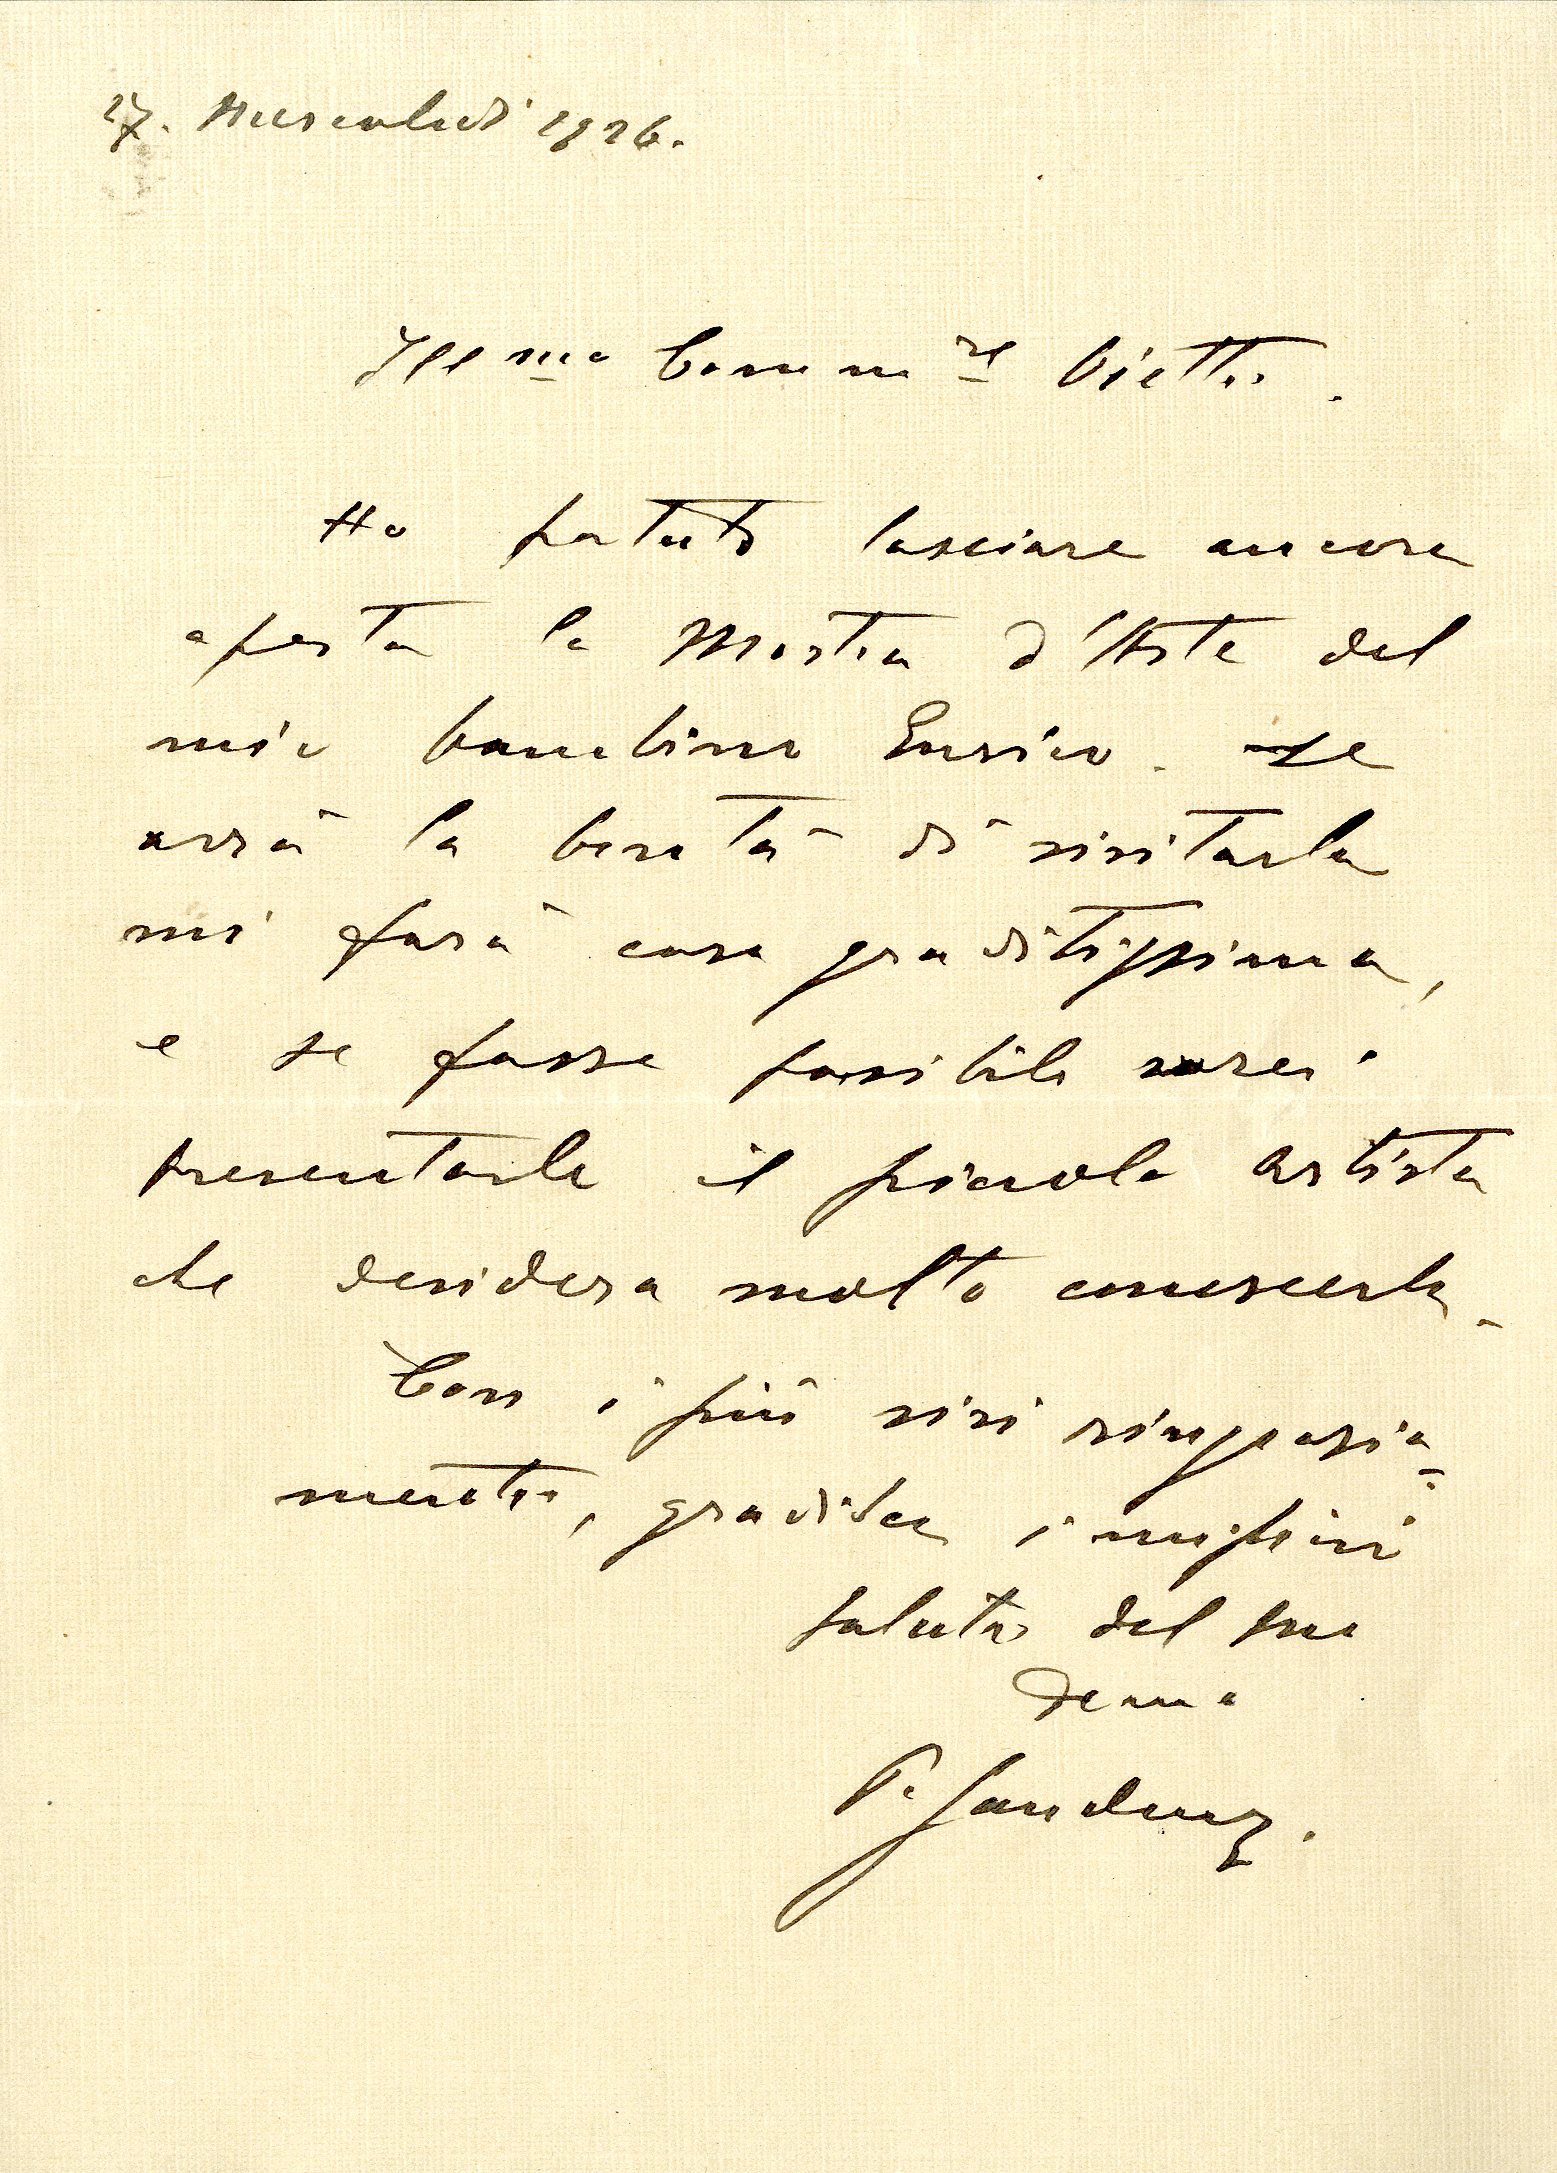 27. Mercoledì 1926.
Ill mo Comm re Vietti.
Ho potuto lasciare ancora
aperta la Mostra d'Arte del
mio bambino Enrico. Se
avrà la bontà di visitarla
mi farà cosa graditissima,
e se fosse possibile vorrei
presentarle il piccolo artista
che desidera molto conoscerla.
Con i più vivi ringrazia=
menti, gradisca i migliori
saluti del suo
Devmo